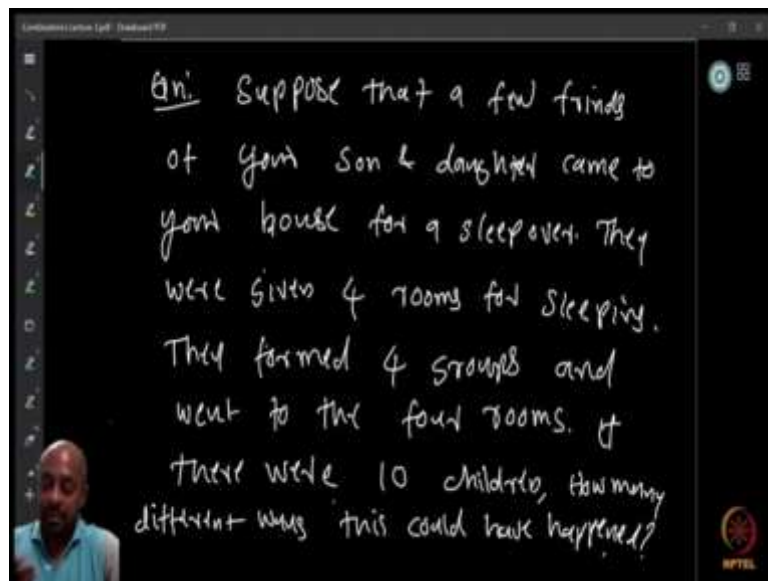 Combinatorics Lecture 1.pdf - Drawboard PDF
Qn: Suppose that a few frinds
of your son & daughter came to
your house for a sleepover. They
were given 4 rooms for sleeping.
They formed 4 groups and
went to the four rooms. If
there were 10 children, How many
different ways this could have happened?
NPTEL